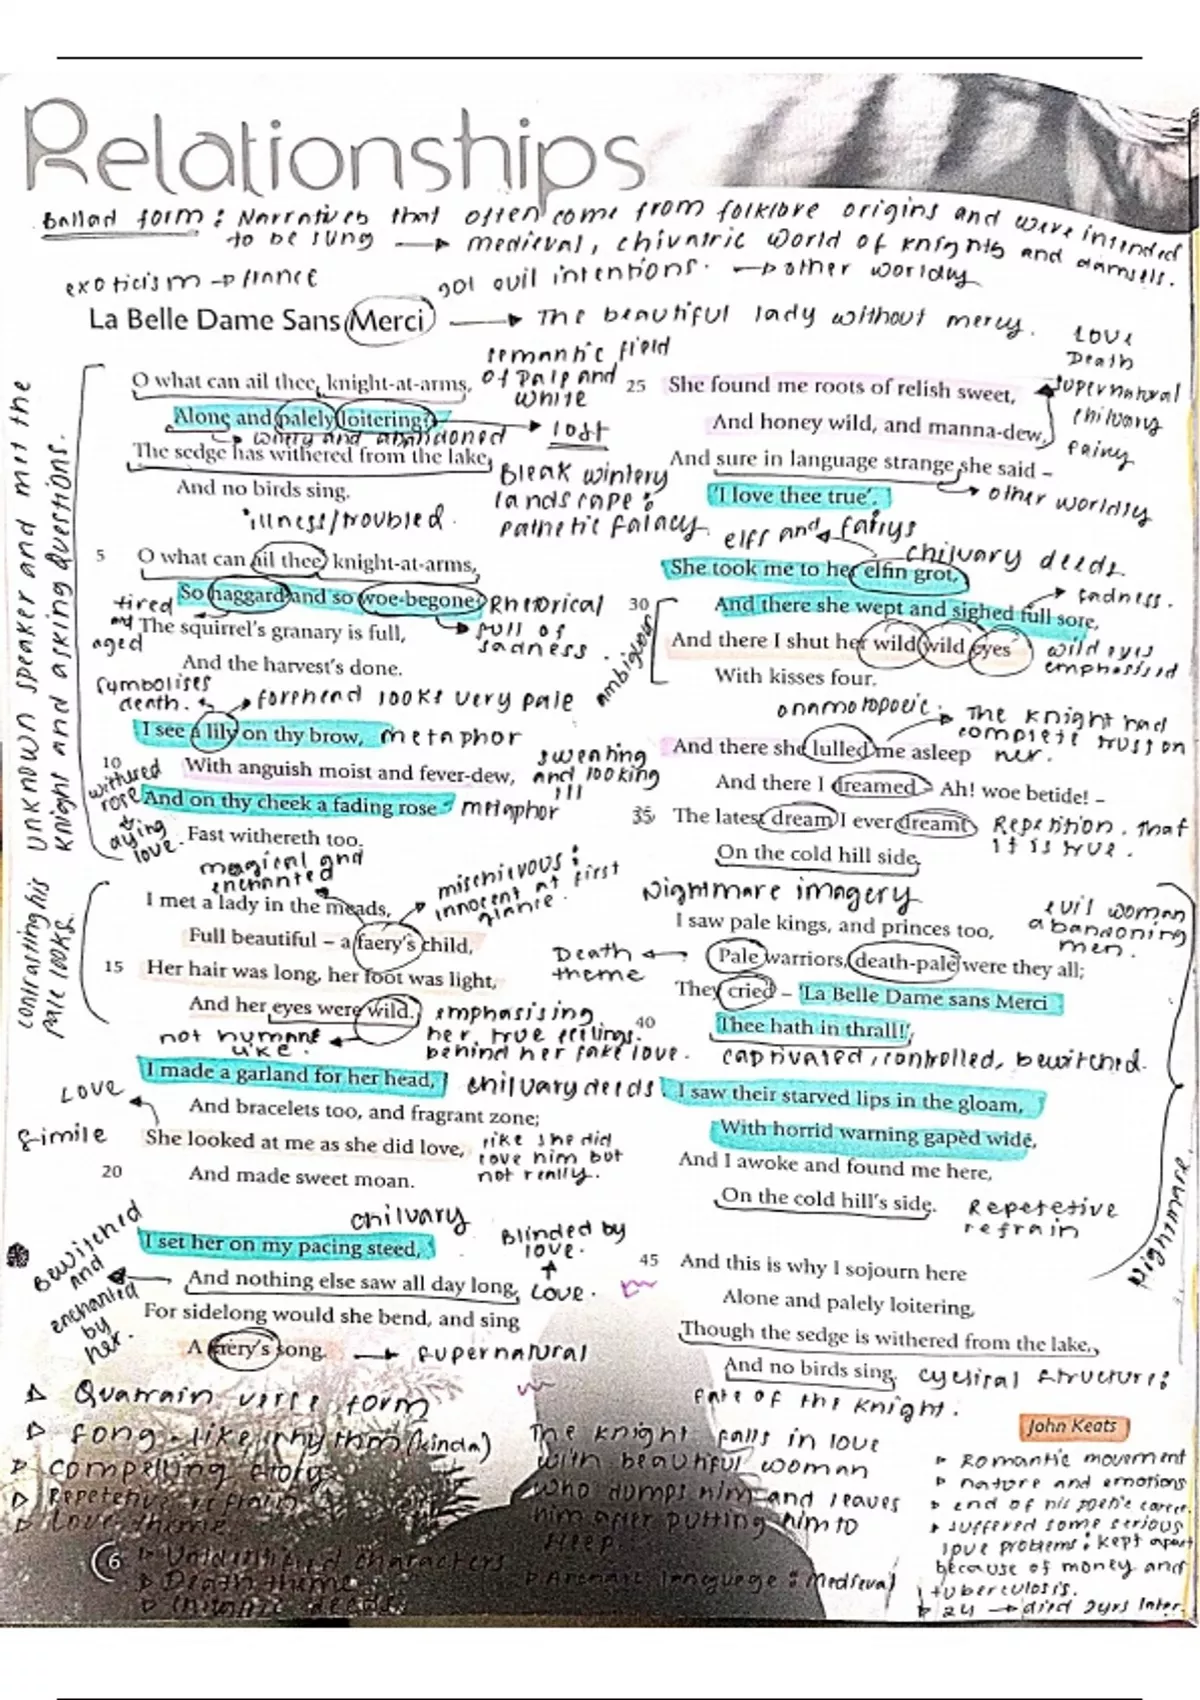 Relationships
Ballad form : Narratives that often come from folklore origins and were intended
to be sung → medieval, chivalric world of knights and damsels.
exoticism → france
got evil intentions. → other worldly
La Belle Dame Sans Merci → The beautiful lady without mercy.
unknown speaker and met the
knight and asking questions.
O what can ail thee, knight-at-arms,
semantic field
of pale and
white
Alone and palely loitering?
→ lost
whery and abandoned
The sedge has withered from the lake,
And no birds sing.
Bleak wintery
landscape :
pathetic falacy.
illness/troubled.
5 O what can ail thee, knight-at-arms,
So haggard and so woe-begone?
Rhetorical
tired
and
aged
full of
sadness.
The squirrel's granary is full,
And the harvest's done.
symbolises
death.
forehead looks very pale
I see a lily on thy brow, metaphor
10 With anguish moist and fever-dew,
sweating
and looking
ill
withered
rose
And on thy cheek a fading rose metaphor
dying
love.
Fast withereth too.
contrasting his
pale looks.
magical and
enchanted
mischievous :
innocent at first
glance.
I met a lady in the meads,
Full beautiful – a faery's child,
15 Her hair was long, her foot was light,
And her eyes were wild.
emphasising
her true feelings.
behind her fake love.
not humane
like.
I made a garland for her head, chilvary deeds.
Love
And bracelets too, and fragrant zone;
simile
She looked at me as she did love,
like she did
love him but
not really.
20 And made sweet moan.
chilvary
I set her on my pacing steed,
Blinded by
love.
Bewitched
and
enchanted
by
her.
And nothing else saw all day long, Love.
For sidelong would she bend, and sing
A faery's song. → supernatural
Love
Death
supernatural
chilvary
fairy
25 She found me roots of relish sweet,
And honey wild, and manna-dew,
And sure in language strange she said –
→ other worldly
'I love thee true'.
elfs and fairys
chilvary deeds.
She took me to her elfin grot,
30 And there she wept and sighed full sore,
→ sadness.
ambiguous
And there I shut her wild wild eyes
wild eyes
emphasised
With kisses four.
onamotopoeic.
The knight had
complete trust on
her.
And there she lulled me asleep
And there I dreamed – Ah! woe betide! –
35 The latest dream I ever dreamt
Repetition. that
it is true.
On the cold hill side.
Nightmare imagery
I saw pale kings, and princes too,
evil woman
abandoning
men.
Death
theme
Pale warriors, death-pale were they all;
They cried – 'La Belle Dame sans Merci
40 Thee hath in thrall!'
captivated, controlled, bewitched.
I saw their starved lips in the gloam,
With horrid warning gapèd wide,
And I awoke and found me here,
On the cold hill's side.
Repetetive
refrain
Nightmare.
45 And this is why I sojourn here
Alone and palely loitering,
Though the sedge is withered from the lake,
And no birds sing. cyclical structure :
fate of the knight.
John Keats
▹ Quatrain verse form
▹ song-like rhythm (kinda)
▹ compelling story
▹ Repetetive refrain
▹ Love theme
▹ Unidentified characters
▹ Death theme
▹ chivalric deeds
6
The knight falls in love
with beautiful woman
who dumps him and leaves
him after putting him to
sleep.
▹ Archaic language : Medieval
▹ Romantic movement
▹ nature and emotions
▹ end of his poetic career.
▹ suffered some serious
love problems : kept apart
because of money and
tuberculosis.
▹ 24 → died 2yrs later.